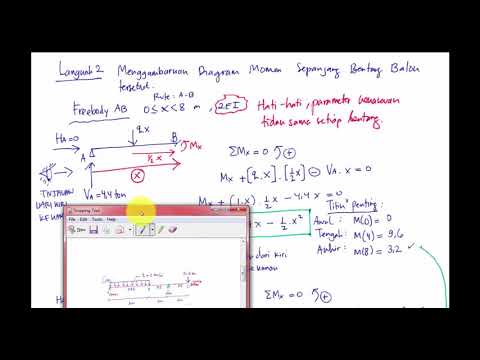 Langkah 2 Menggambarkan Diagram Momen Sepanjang Bentang Balok
tersebut.
Rute: A-B
Freebody AB 0 ≤ x < 8 m, 2EI
Hati-hati, parameter kekakuan
tidak sama setiap bentang.
HA=0
q.x
B
Mx
½x
A
x
VA = 4,4 ton
TINJAUAN
DARI KIRI
KE KANAN
ΣMx = 0
Mx + [q.x].[½x] − VA.x = 0
Mx + (1.x).½x − 4,4x = 0
x − ½.x²
Titik² penting:
Awal: M(0) = 0
Tengah: M(4) = 9,6
Akhir: M(8) = 3,2 ✓
dari kiri
ΣMx = 0
Snipping Tool
File Edit Tools Help
New